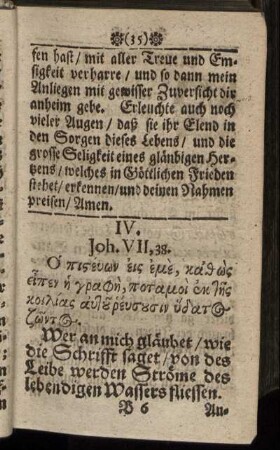 (35)
sen hast / mit aller Treue und Em-
sigkeit verharre / und so dann mein
Anliegen mit gewisser Zuversicht dir
anheim gebe. Erleuchte auch noch
vieler Augen / daß sie ihr Elend in
den Sorgen dieses Lebens / und die
grosse Seligkeit eines gläubigen Her-
tzens / welches in Göttlichen Frieden
stehet / erkennen / und deinen Nahmen
preisen / Amen.
IV.
Joh. VII, 38.
Ο πιςευων εις εμὲ, καθὼς
εἶπεν ἡ γραφὴ, ποταμοὶ ἐκ τῆς
κοιλίας αυτοῦ ρέυσουσιν ὕδατ☉
ζῶντ☉.
Wer an mich gläubet / wie
die Schrifft saget / von des
Leibe werden Ströme des
lebendigen Wassers fliessen.
B 6 An-